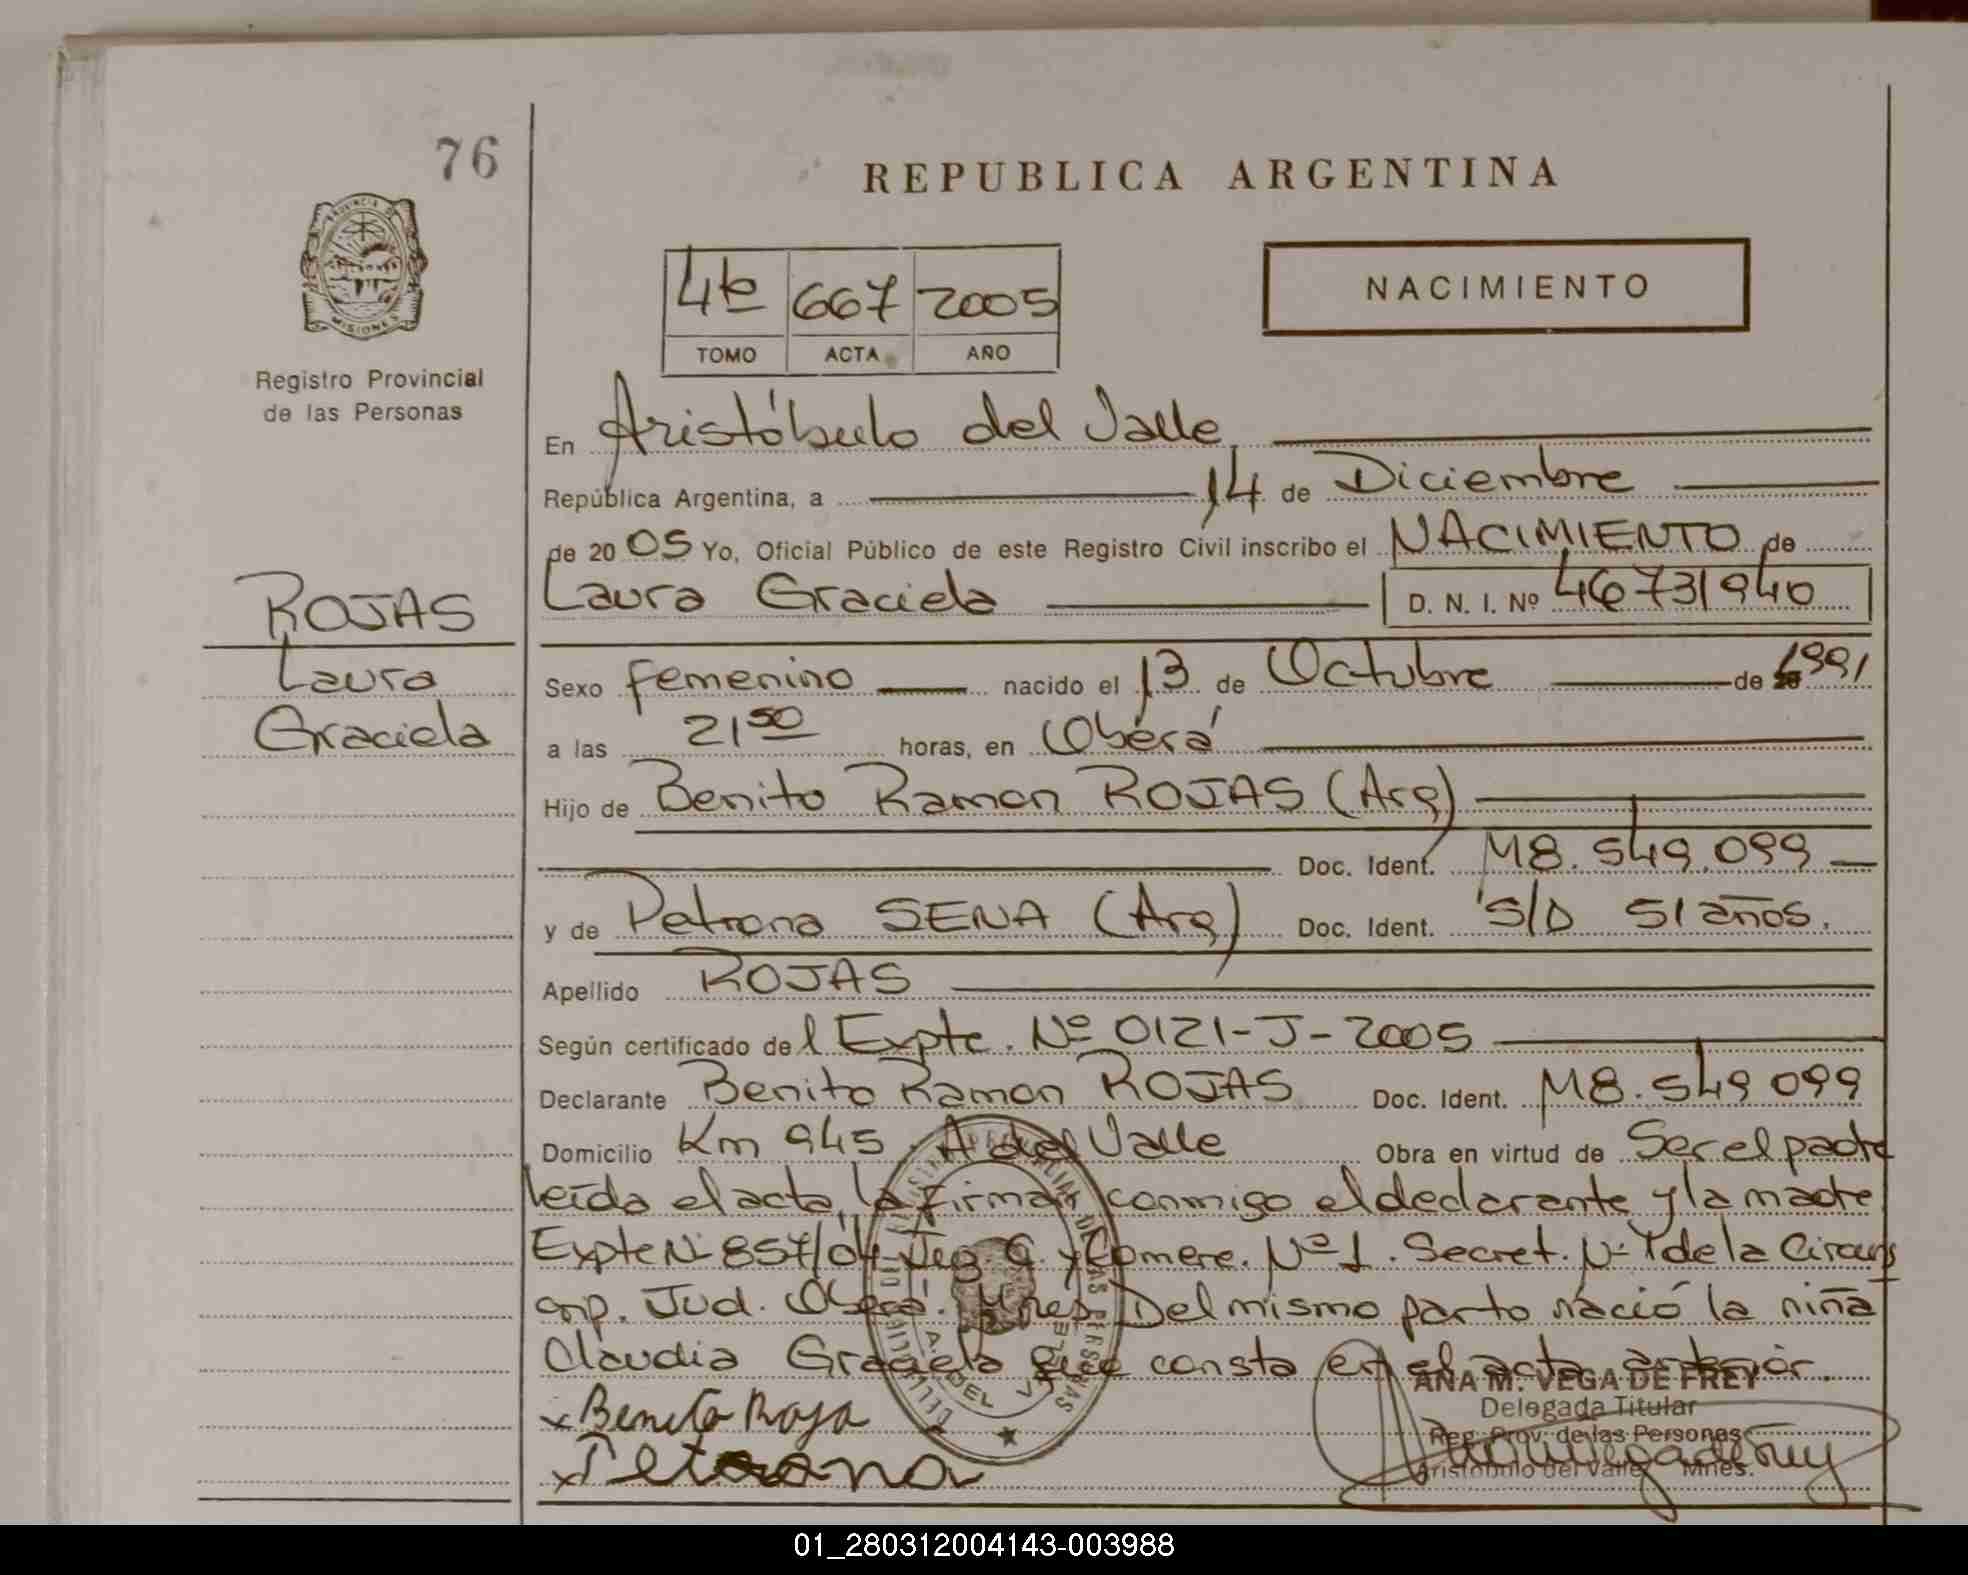 76
REPUBLICA ARGENTINA
PROVINCIA DE
MISIONES
Registro Provincial
de las Personas
4to 667 2005
TOMO ACTA AÑO
NACIMIENTO
En Aristóbulo del Valle
República Argentina, a 14 de Diciembre
de 2005 Yo, Oficial Público de este Registro Civil inscribo el NACIMIENTO de
Laura Graciela D. N. I. Nº 46731940
ROJAS
Laura
Graciela
Sexo femenino nacido el 13 de Octubre de 1991
a las 21 50 horas, en Oberá
Hijo de Benito Ramon ROJAS (Arg)
Doc. Ident. M8.549.099
y de Petrona SENA (Arg) Doc. Ident. S/D 51 años.
Apellido ROJAS
Según certificado del Expte. Nº 0121-J-2005
Declarante Benito Ramon ROJAS Doc. Ident. M8.549 099
Domicilio Km 945 A del Valle Obra en virtud de Ser el padre
leída el acta, la firman conmigo el declarante y la madre
Expte Nº 857/04 C. y Comerc. Nº 1. Secret. Nº 1 de la Circuns
crip. Jud. Oberá. Mnes. Del mismo parto nació la niña
Claudia Graciela que consta en el acta anterior.
x Benito Roja
x Petrona
ANA M. VEGA DE FREY
Delegada Titular
Reg. Prov. de las Personas
Aristóbulo del Valle Mnes.
A. DEL VALLE
01_280312004143-003988